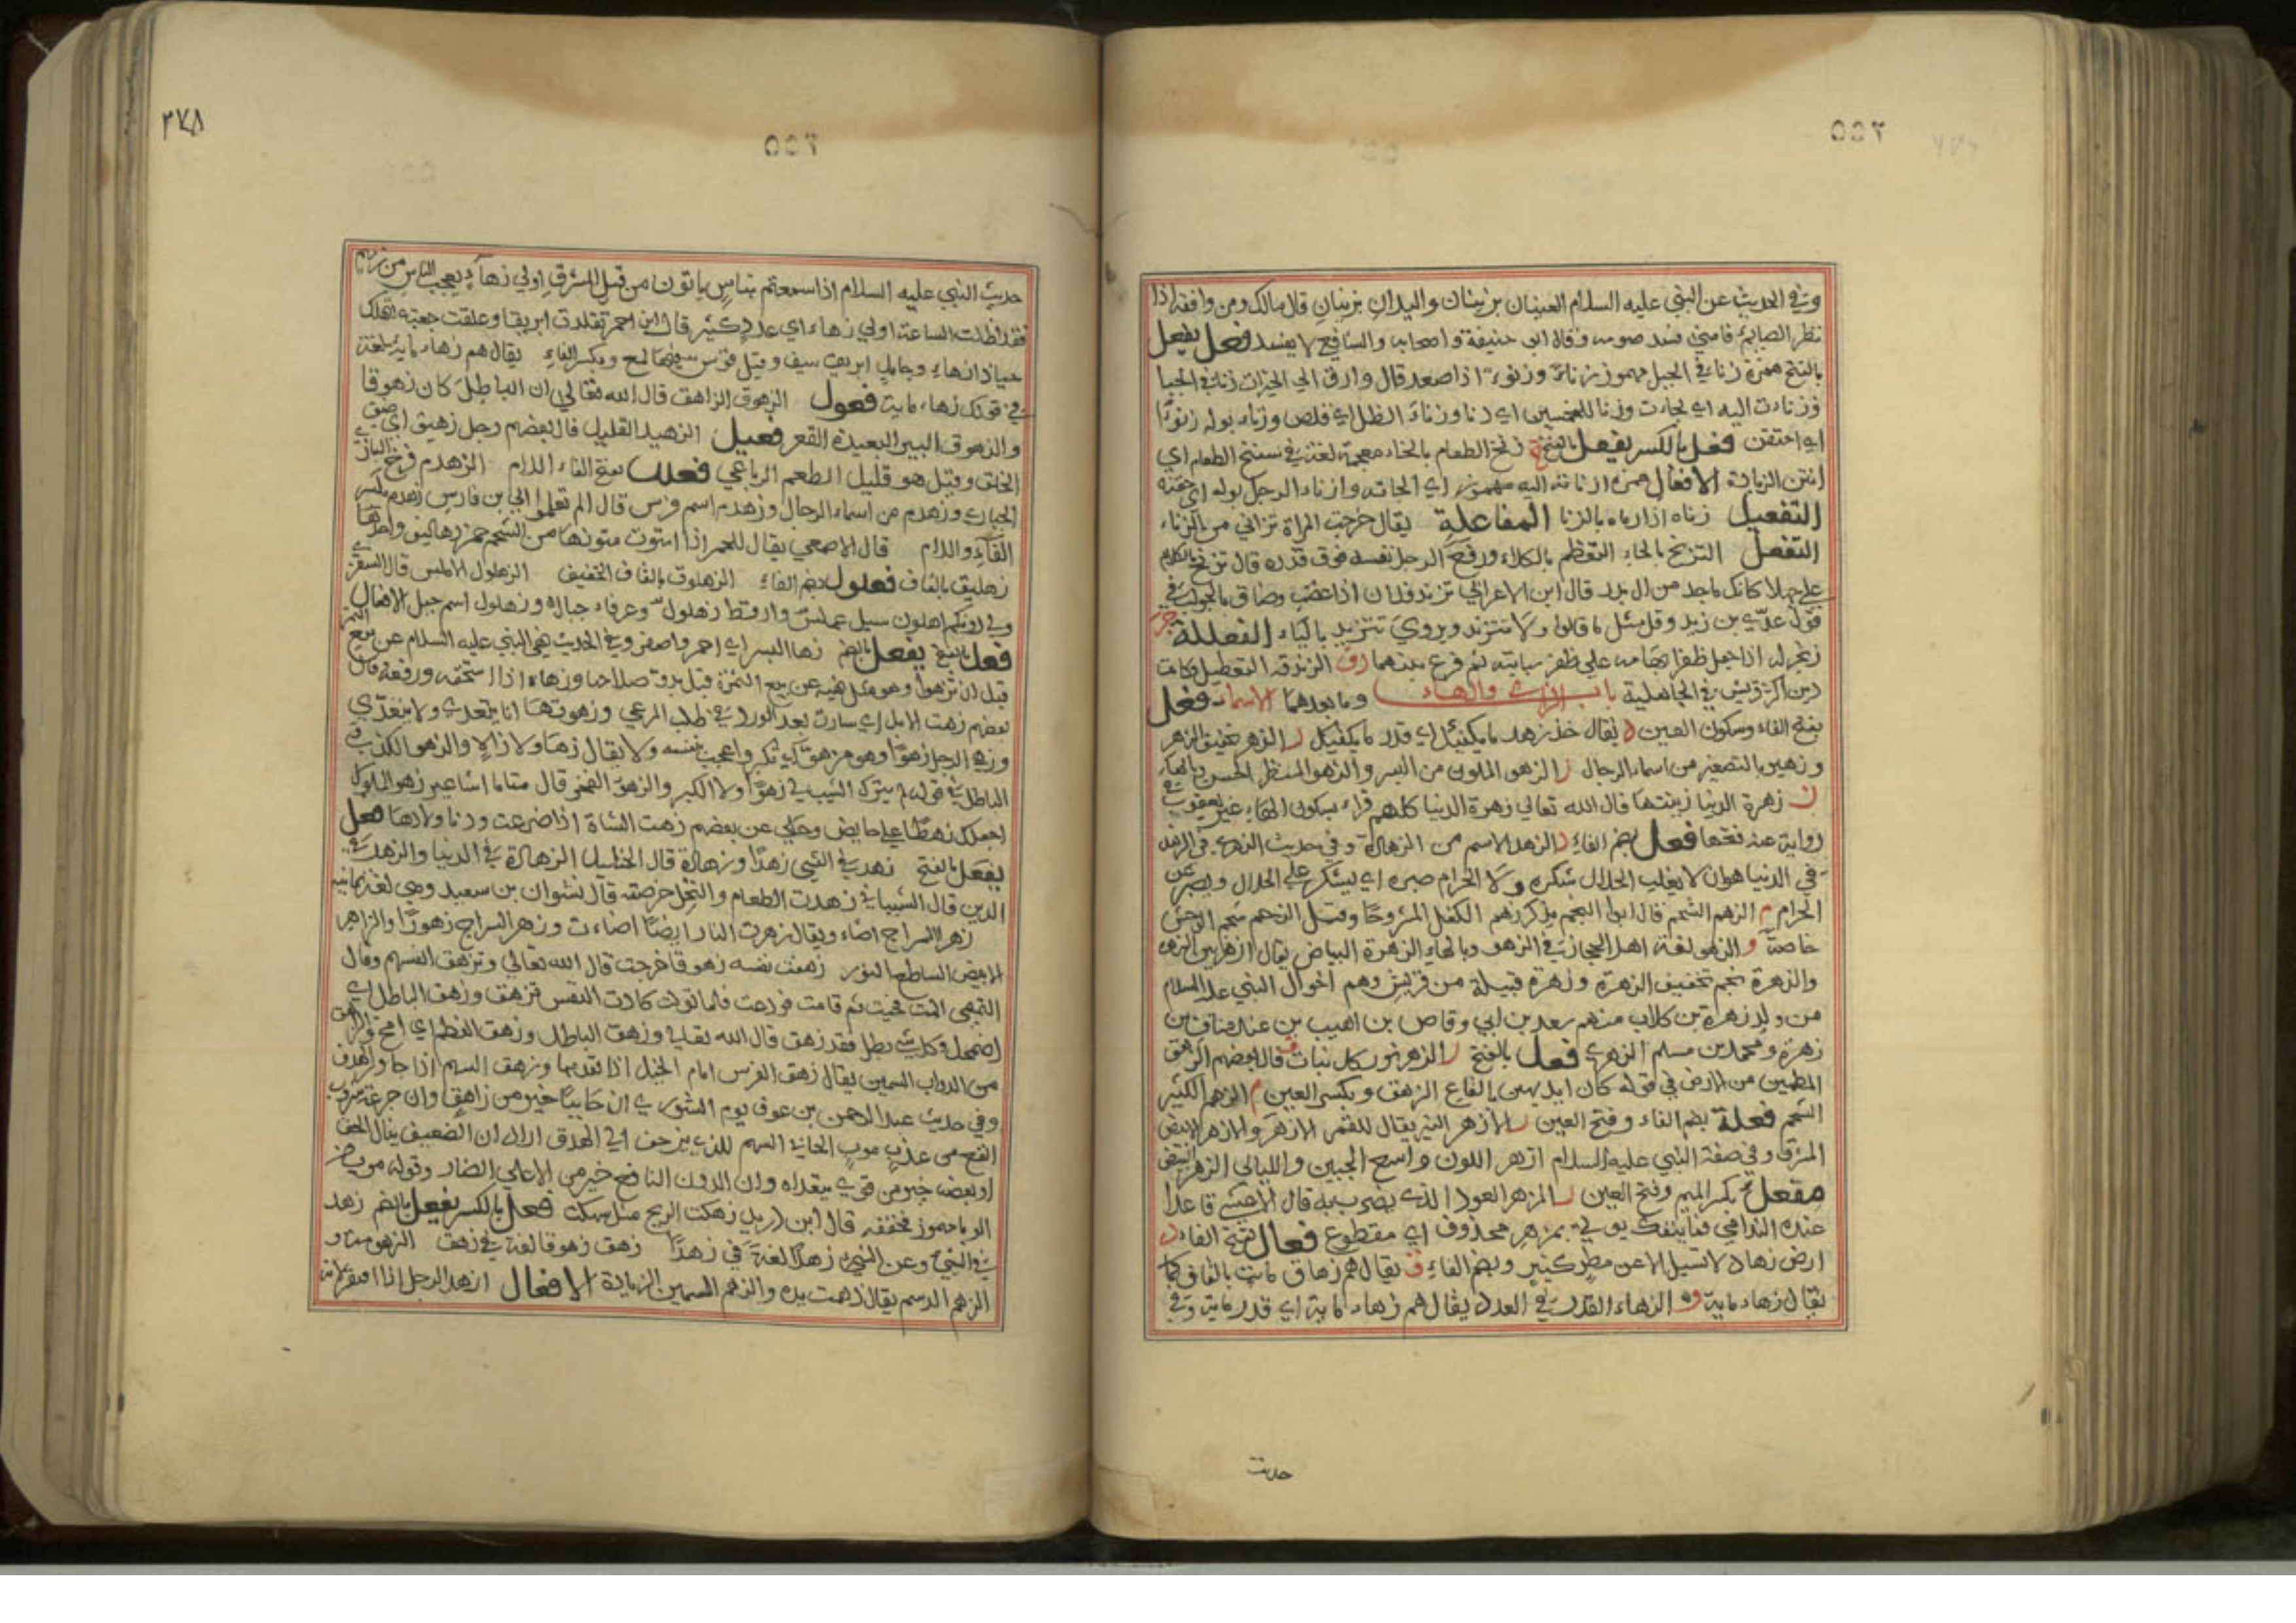 وفي الحديث عن النبي عليه السلام العينان تزنيان واليدان تزنيان قال مالك ومن وافقه اذا
نظر الصايم فامني فسد صومه وقال ابو حنيفة واصحابه والشافعي لا يفسد فعل يفعل
بالفتح همزة زناء في الجبل مهموز زناء وزنوءا اذا صعد قال وارق الي الخيرات زناء في الجبل
وزنات اليه اي لجات وزنا للخمسين اي دنا وزناء الظل اي قلص وزناء بوله زنوءا
اي احتقن فعل بالكسر يفعل بالفتح زنخ الطعام بالخاء معجمة لغة في سنخ الطعام اي
انتن الزيادة الافعال همزة ازناته اليه مهموز اي الجاته وازناء الرجل بوله اي حقنه
التفعيل زناه اذا رماه بالزنا المفاعلة يقال خرجت المراة تزاني من الزناء
التفعل التزنخ بالخاء التعظم بالكلام ورفع الرجل نفسه فوق قدره قال تزنخ بالكلام
علي جهلا كانك ماجد من ال بدر قال ابن الاعرابي تزند فلان اذا غضب وضاق بالجواب في
قول عدي بن زيد وقل مثل ما قالوا ولا تتزند ويروي تتزيد بالياء الفعللة
زنجر له اذا جعل ظفر ابهامه علي ظفر سبابته ثم قرع بينهما ق الزندقة التعطيل وكانت
دين اكثر قريش في الجاهلية باب الزاي والهاء وما بعدهما الاسماء فعل
بفتح الفاء وسكون العين د يقال خذ زهد ما يكفيك اي قدر ما يكفيك ر الزهر تخفيف الزهر
وزهير بالتصغير من اسماء الرجال و الزهو الملون من البسر والزهو المنظر الحسن وبالهاء
ر زهرة الدنيا زينتها قال الله تعالي زهرة الدنيا كلهم قراء بسكون الهاء غير يعقوب في
رواية عنه فتحها فعل بضم الفاء د الزهد الاسم من الزهادة وفي حديث الزهري في الزهد
في الدنيا هو ان لا يغلب الحلال شكره ولا الحرام صبره اي يشكر علي الحلال ويصبر عن
الحرام م الزهم الشحم قال ابو النجم يذكر زهم الكفل المشروحا وقيل الزهم شحم الوحش
خاصة و الزهو لغة اهل الحجاز في الزهو وبالهاء الزهرة البياض يقال ازهر بين الزهرة
والزهرة نجم تخفيف الزهرة وزهرة قبيلة من قريش وهم اخوال النبي عليه السلام
من ولد زهرة بن كلاب منهم سعد بن ابي وقاص بن اهيب بن عبد مناف بن
زهرة ومحمد بن مسلم الزهري فعل بالفتح ر الزهر نور كل نبات ق قال بعضهم الزهق
المطمين من الارض في قوله كان ايديهن بالقاع الزهق وبكسر العين م الزهم الكثير
الشحم فعلة بضم الفاء وفتح العين ر الازهر النير يقال للقمر الازهر والازهر الابيض
المشرق وفي صفة النبي عليه السلام ازهر اللون واسع الجبين والليالي الزهر البيض
مفعل بكسر الميم وفتح العين ر المزهر العود الذي يضرب به قال الاعشي قاعدا
عنده الندامي فما ينفك يوتي بمزهر محذوف اي مقطوع فعال بفتح الفاء د
ارض زهاد لا تسيل الا عن مطر كثير وبضم الفاء ق يقال هم زهاق ماية بالقاف كما
يقال زهاء ماية و الزهاء القدر في العدد يقال هم زهاء ماية اي قدر ماية وفي
حديث
٣٧٨
حديث النبي عليه السلام اذا سمعتم بناس ياتون من قبل المشرق اولي زهاء يعجب الناس من زيهم
فقد اظلت الساعة اولي زهاء اي عدد كثير قال ابن احمر تقلدت ابريقا وعلقت جعبة لتهلك
حيا ذا زهاء وجامل ابريق سيف وقيل قوس فيها لمع وبكسر الفاء يقال هم زهاء ماية لغة
في قولك زهاء ماية فعول الزهوق الزاهق قال الله تعالي ان الباطل كان زهوقا
والزهوق البير البعيدة القعر فعيل الزهيد القليل قال بعضهم رجل زهيد اي ضيق
الخلق وقيل هو قليل الطعم الرباعي فعلل بفتح الفاء واللام الزهدم فرخ البازي
الحباري وزهدم من اسماء الرجال وزهدم اسم فرس قال الم تعلموا اني ابن فارس زهدم بكسر
الفاء واللام قال الاصمعي يقال للحمر اذا استوت متونها من الشحم حمر زهاليق واحدها
زهليق بالقاف فعلول بضم الفاء الزهلوق بالقاف الخفيف الزهلول الاملس قال الشنفري
ولي دونكم اهلون سيد عملس وارقط زهلول وعرفاء جيال وزهلول اسم جبل الافعال
فعل بالفتح يفعل بالضم زها البسر اي احمر واصفر وفي الحديث نهي النبي عليه السلام عن بيع الثمرة
قبل ان تزهوا وهو مثل نهيه عن بيع الثمرة قبل بدو صلاحها وزهاه اذا استخفه ورفعه قال
بعضهم زهت الابل اي سارت بعد الورد في طلب المرعي وزهوتها انا يتعدي ولا يتعدي
وزهي الرجل زهوا وهو مزهو اي تكبر واعجب بنفسه ولا يقال زها ولا زاه والزهو الكذب
الباطل في قوله لم يترك الشيب لي زهوا ولا الكبر والزهو الفخر قال متاما اشا غير زهو الملوك
اجعلك رهطا علي حايض وحكي عن بعضهم زهت الشاة اذا اضرعت ودنا ولادها فعل
يفعل بالفتح زهد في الشي زهدا وزهادة قال الخليل الزهادة في الدنيا والزهد في
الدين قال الشيباني زهدت الطعام والنخل خرصته قال نشوان بن سعيد وهي لغة يمانية
زهر السراج اضاء ويقال زهرت النار ايضا اضاءت وزهر السراج زهورا والزاهر
الابيض الساطع النور زهقت نفسه زهوقا خرجت قال الله تعالي وتزهق انفسهم وقال
المت فحيت ثم قامت فودعت فلما تولت كادت النفس تزهق وزهق الباطل اي
اضمحل وكل شي بطل فقد زهق قال الله تعالي وزهق الباطل وزهق العظم اي امخ والزاهق
من الدواب السمين يقال زهق الفرس امام الخيل اذا تقدمها وزهق السهم اذا جاوز الهدف
وفي حديث عبد الرحمن بن عوف يوم الشوري ان حابيا خير من زاهق وان جرعة شروب
انفع من عذب موب الحابي السهم الذي يزحف الي الهدف اراد ان الضعيف ينال الحق
او بعضه خير من قوي يتعداه وان الدون النافع خير من الاعلي الضار وقوله موب من
الوبا مهموز فخففه قال ابن دريد زهكت الريح مثل سهكت فعل بالكسر يفعل بالضم زهد
في الشي وعن الشي زهدا لغة في زهدا زهق زهوقا لغة في زهق الزهومة و
الزهم الدسم يقال زهمت يده والزهم السمين الزيادة الافعال ازهد الرجل اذا افتقر